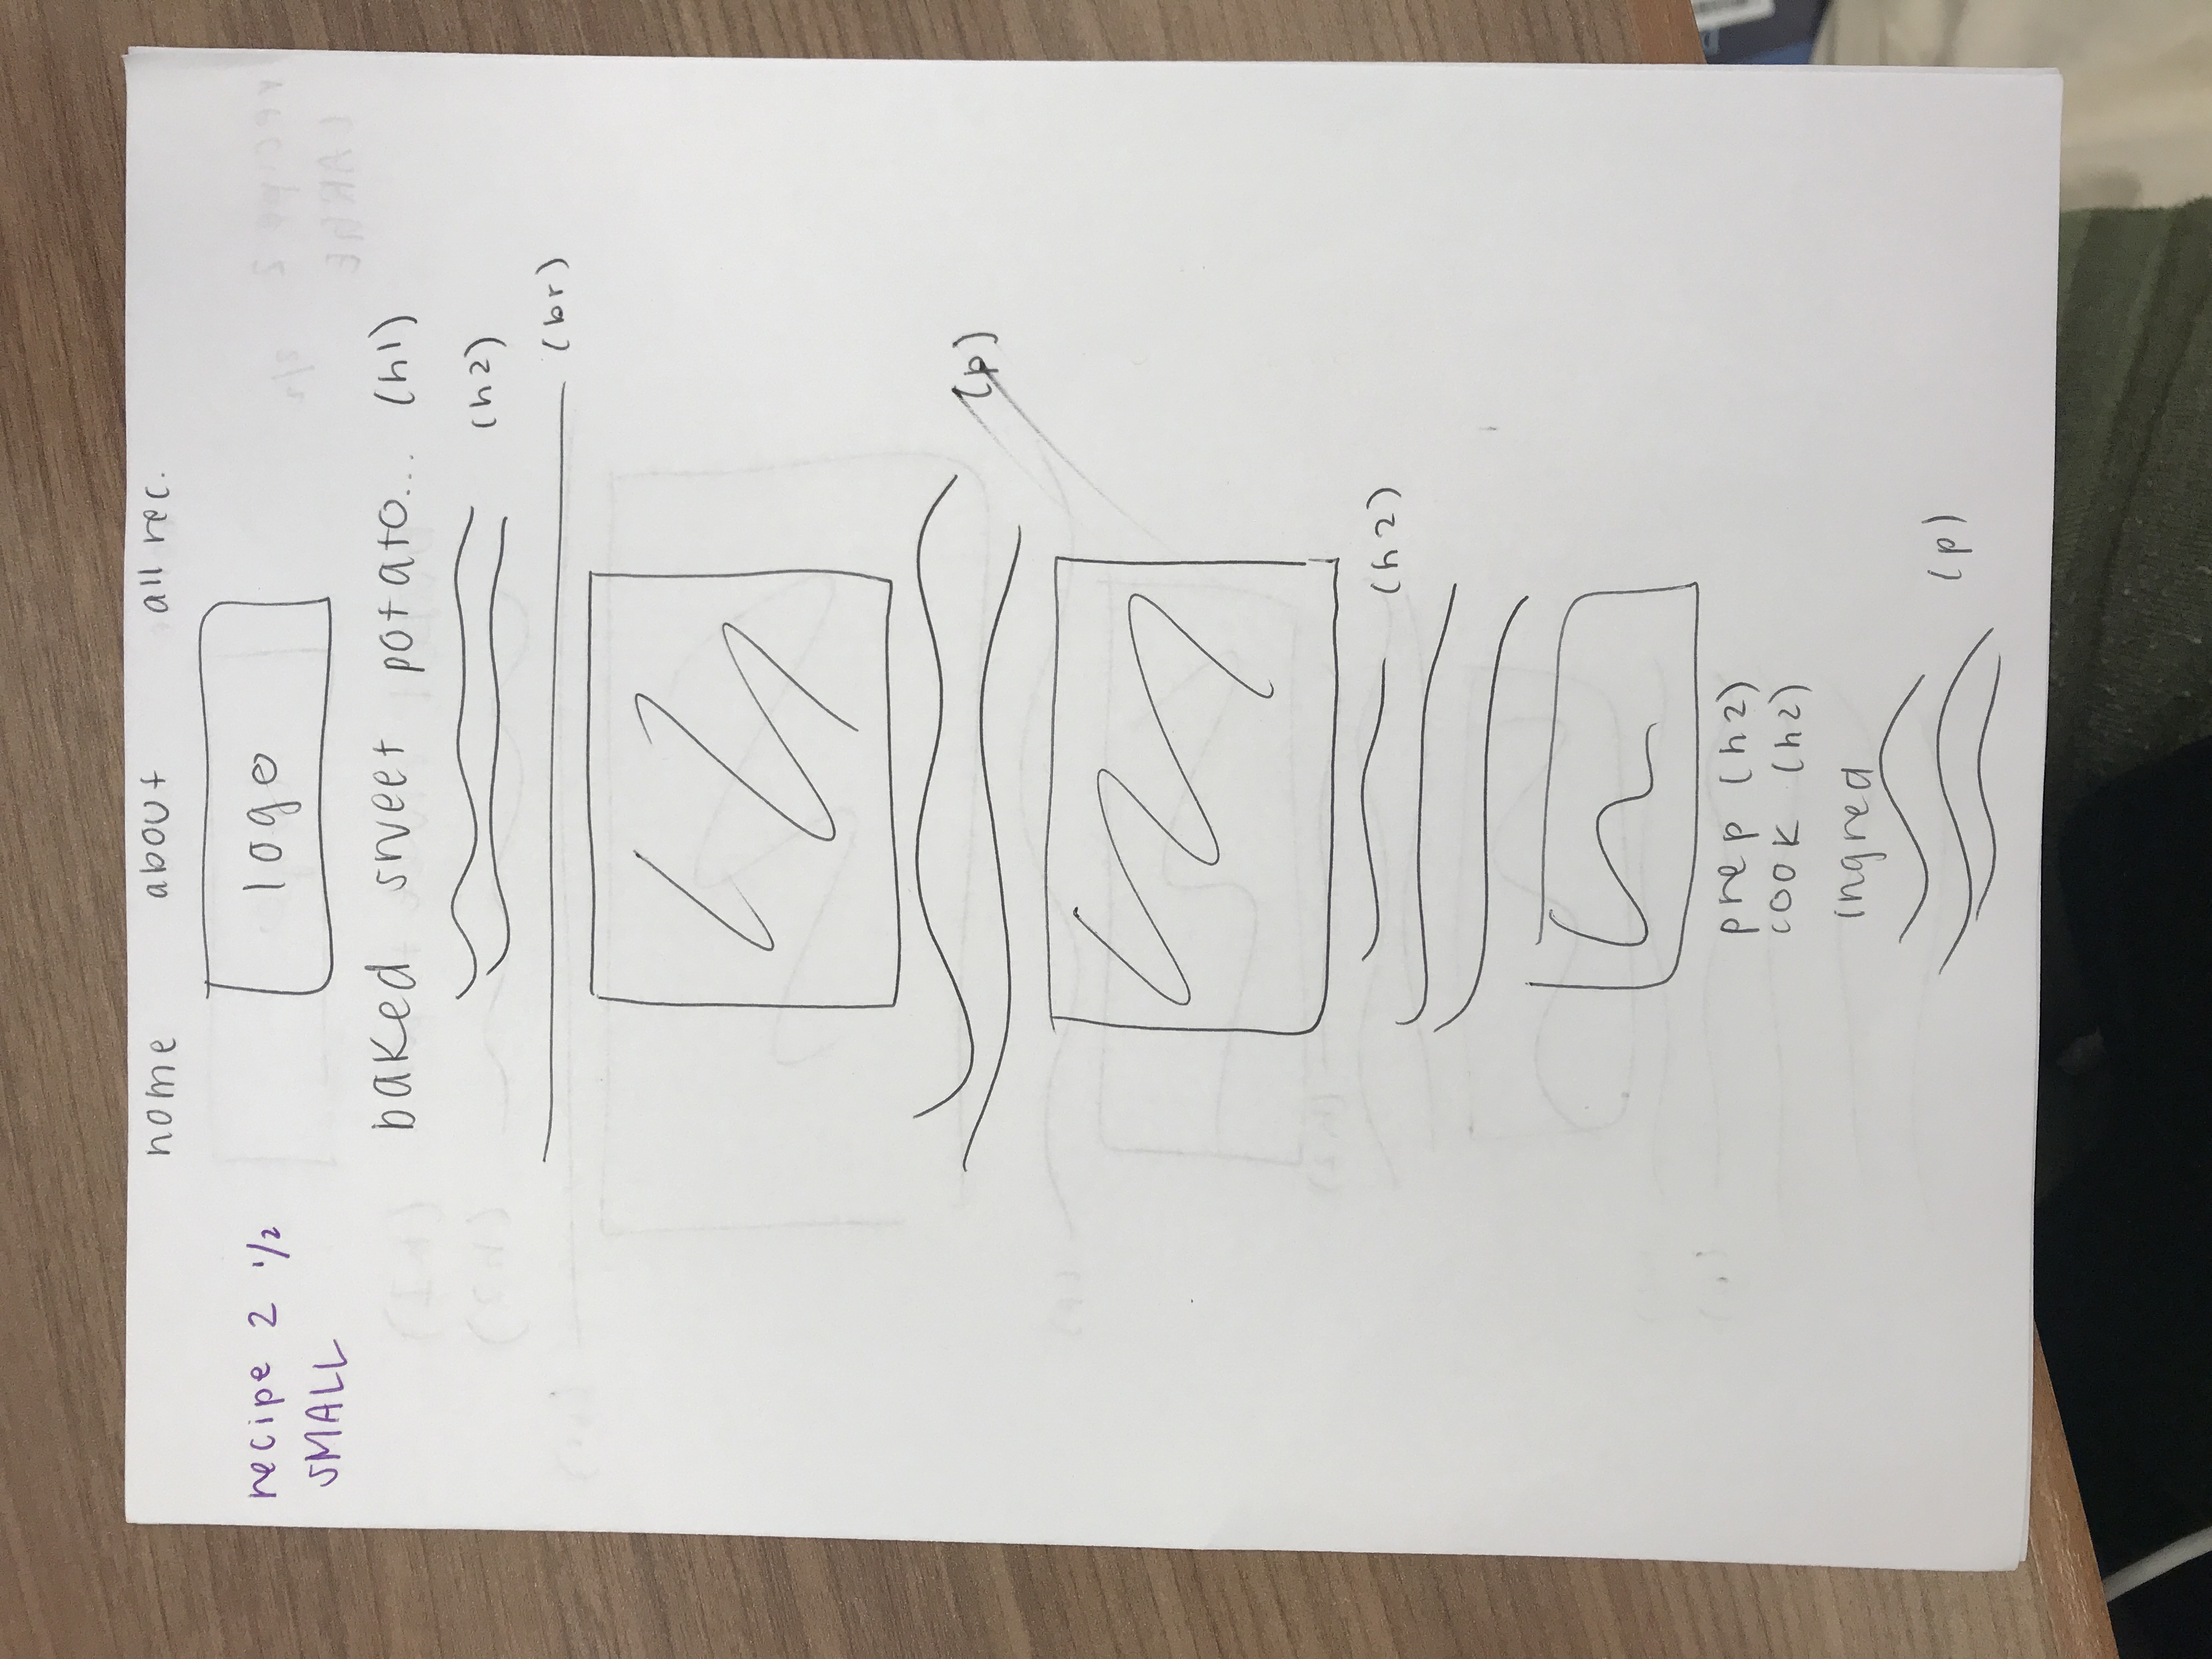 home about all rec.
logo
recipe 2 1/2
SMALL
baked sweet potato... (h1)
(h2)
(br)
(p)
(h2)
prep (h2)
cook (h2)
ingred
(p)